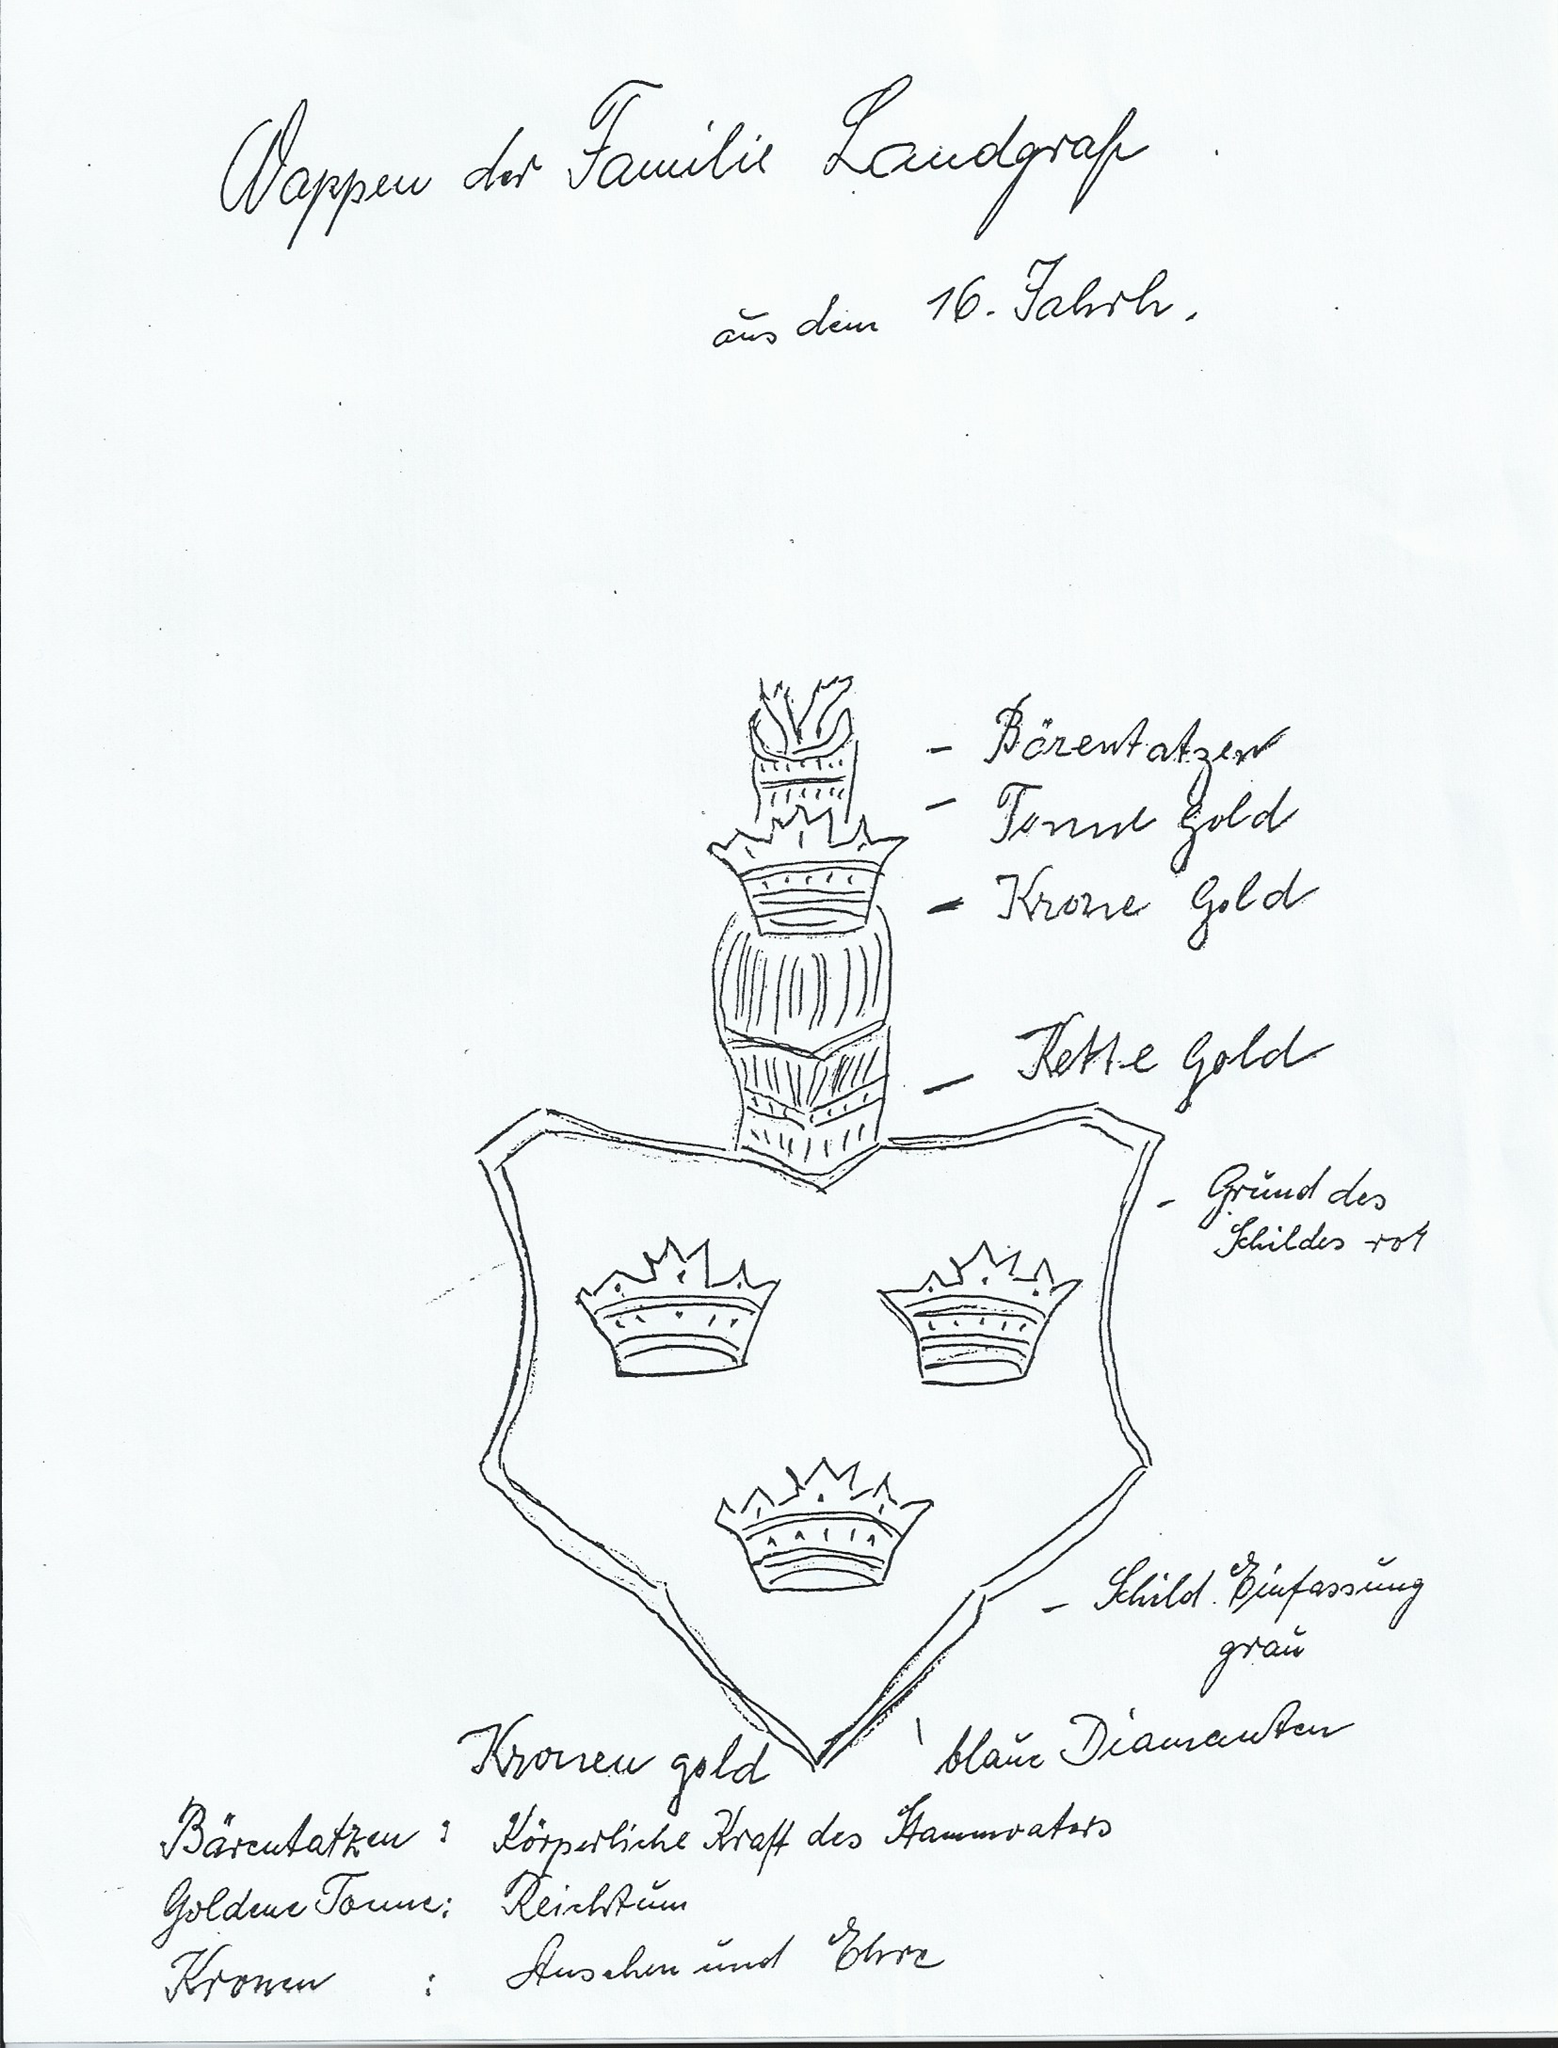 Wappen der Familie Landgraf
aus dem 16. Jahrh.
- Bärentatzen
- Tonne Gold
- Krone Gold
- Kette Gold
- Grund des
Schildes rot
- Schild. Einfassung
grau
Kronen gold
blaue Diamanten
Bärentatzen : Körperliche Kraft des Stammvaters
Goldene Tonne: Reichtum
Kronen : Ansehen und Ehre